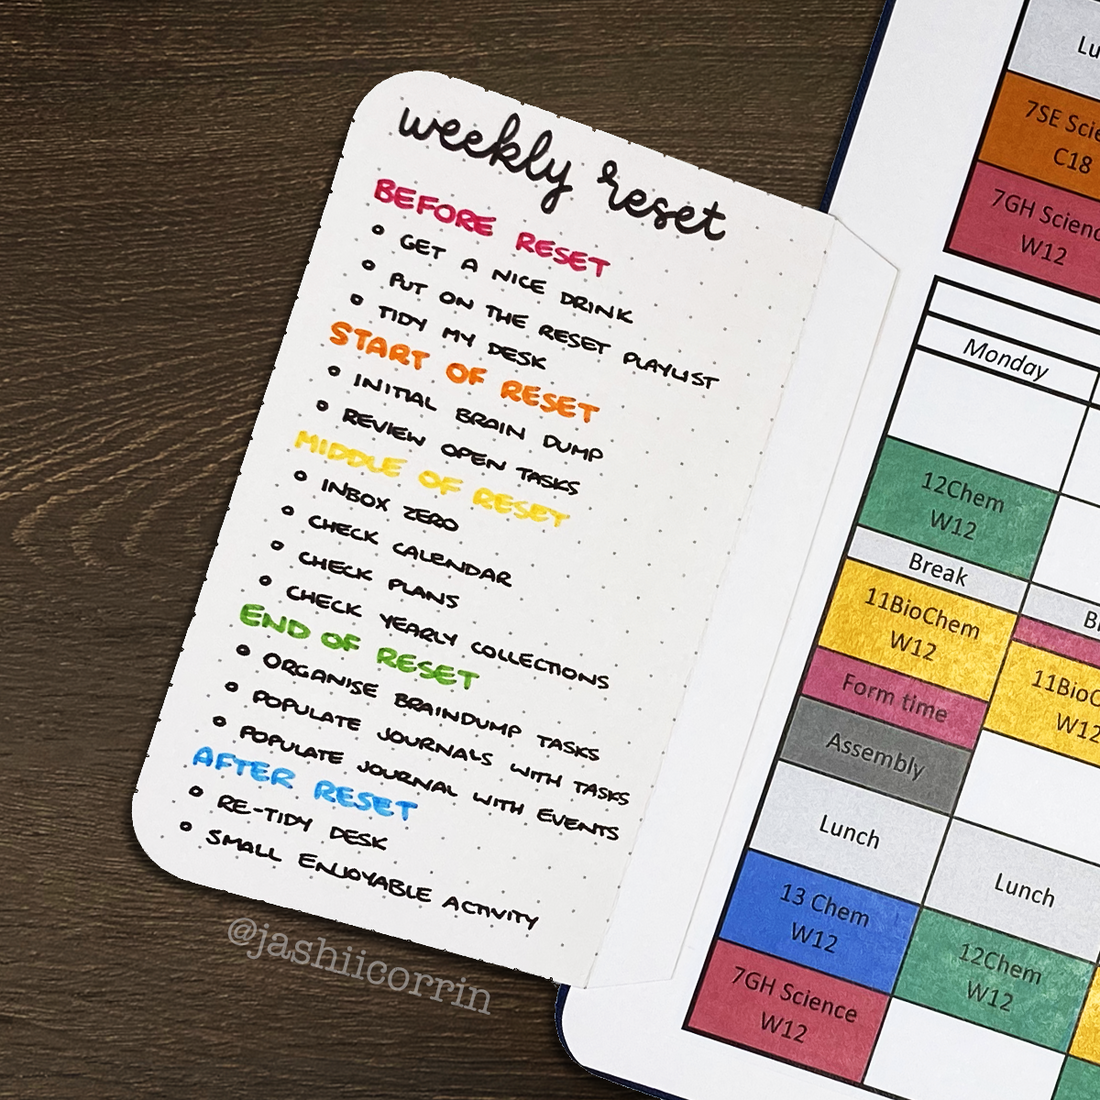 weekly reset
BEFORE RESET
GET A NICE DRINK
PUT ON THE RESET PLAYLIST
TIDY MY DESK
START OF RESET
INITIAL BRAIN DUMP
REVIEW OPEN TASKS
MIDDLE OF RESET
INBOX ZERO
CHECK CALENDAR
CHECK PLANS
CHECK YEARLY COLLECTIONS
END OF RESET
ORGANISE BRAINDUMP TASKS
POPULATE JOURNALS WITH TASKS
POPULATE JOURNAL WITH EVENTS
AFTER RESET
RE-TIDY DESK
SMALL ENJOYABLE ACTIVITY
@jashiicorrin
7SE
C18
7GH
W12
Monday
12Chem
W12
Break
11BioChem
W12
Form time
Assembly
Lunch
13 Chem
W12
7GH Science
W12
W12
Lunch
12Chem
W12